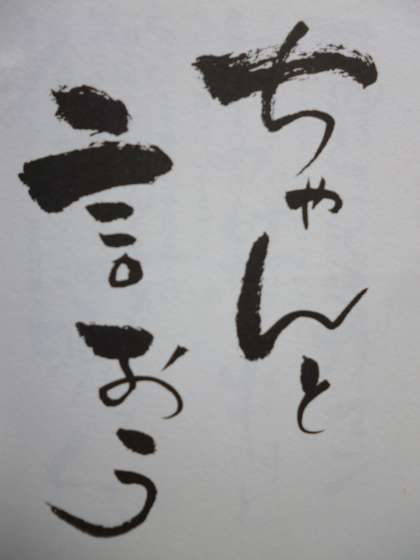 ちゃんと
言おう